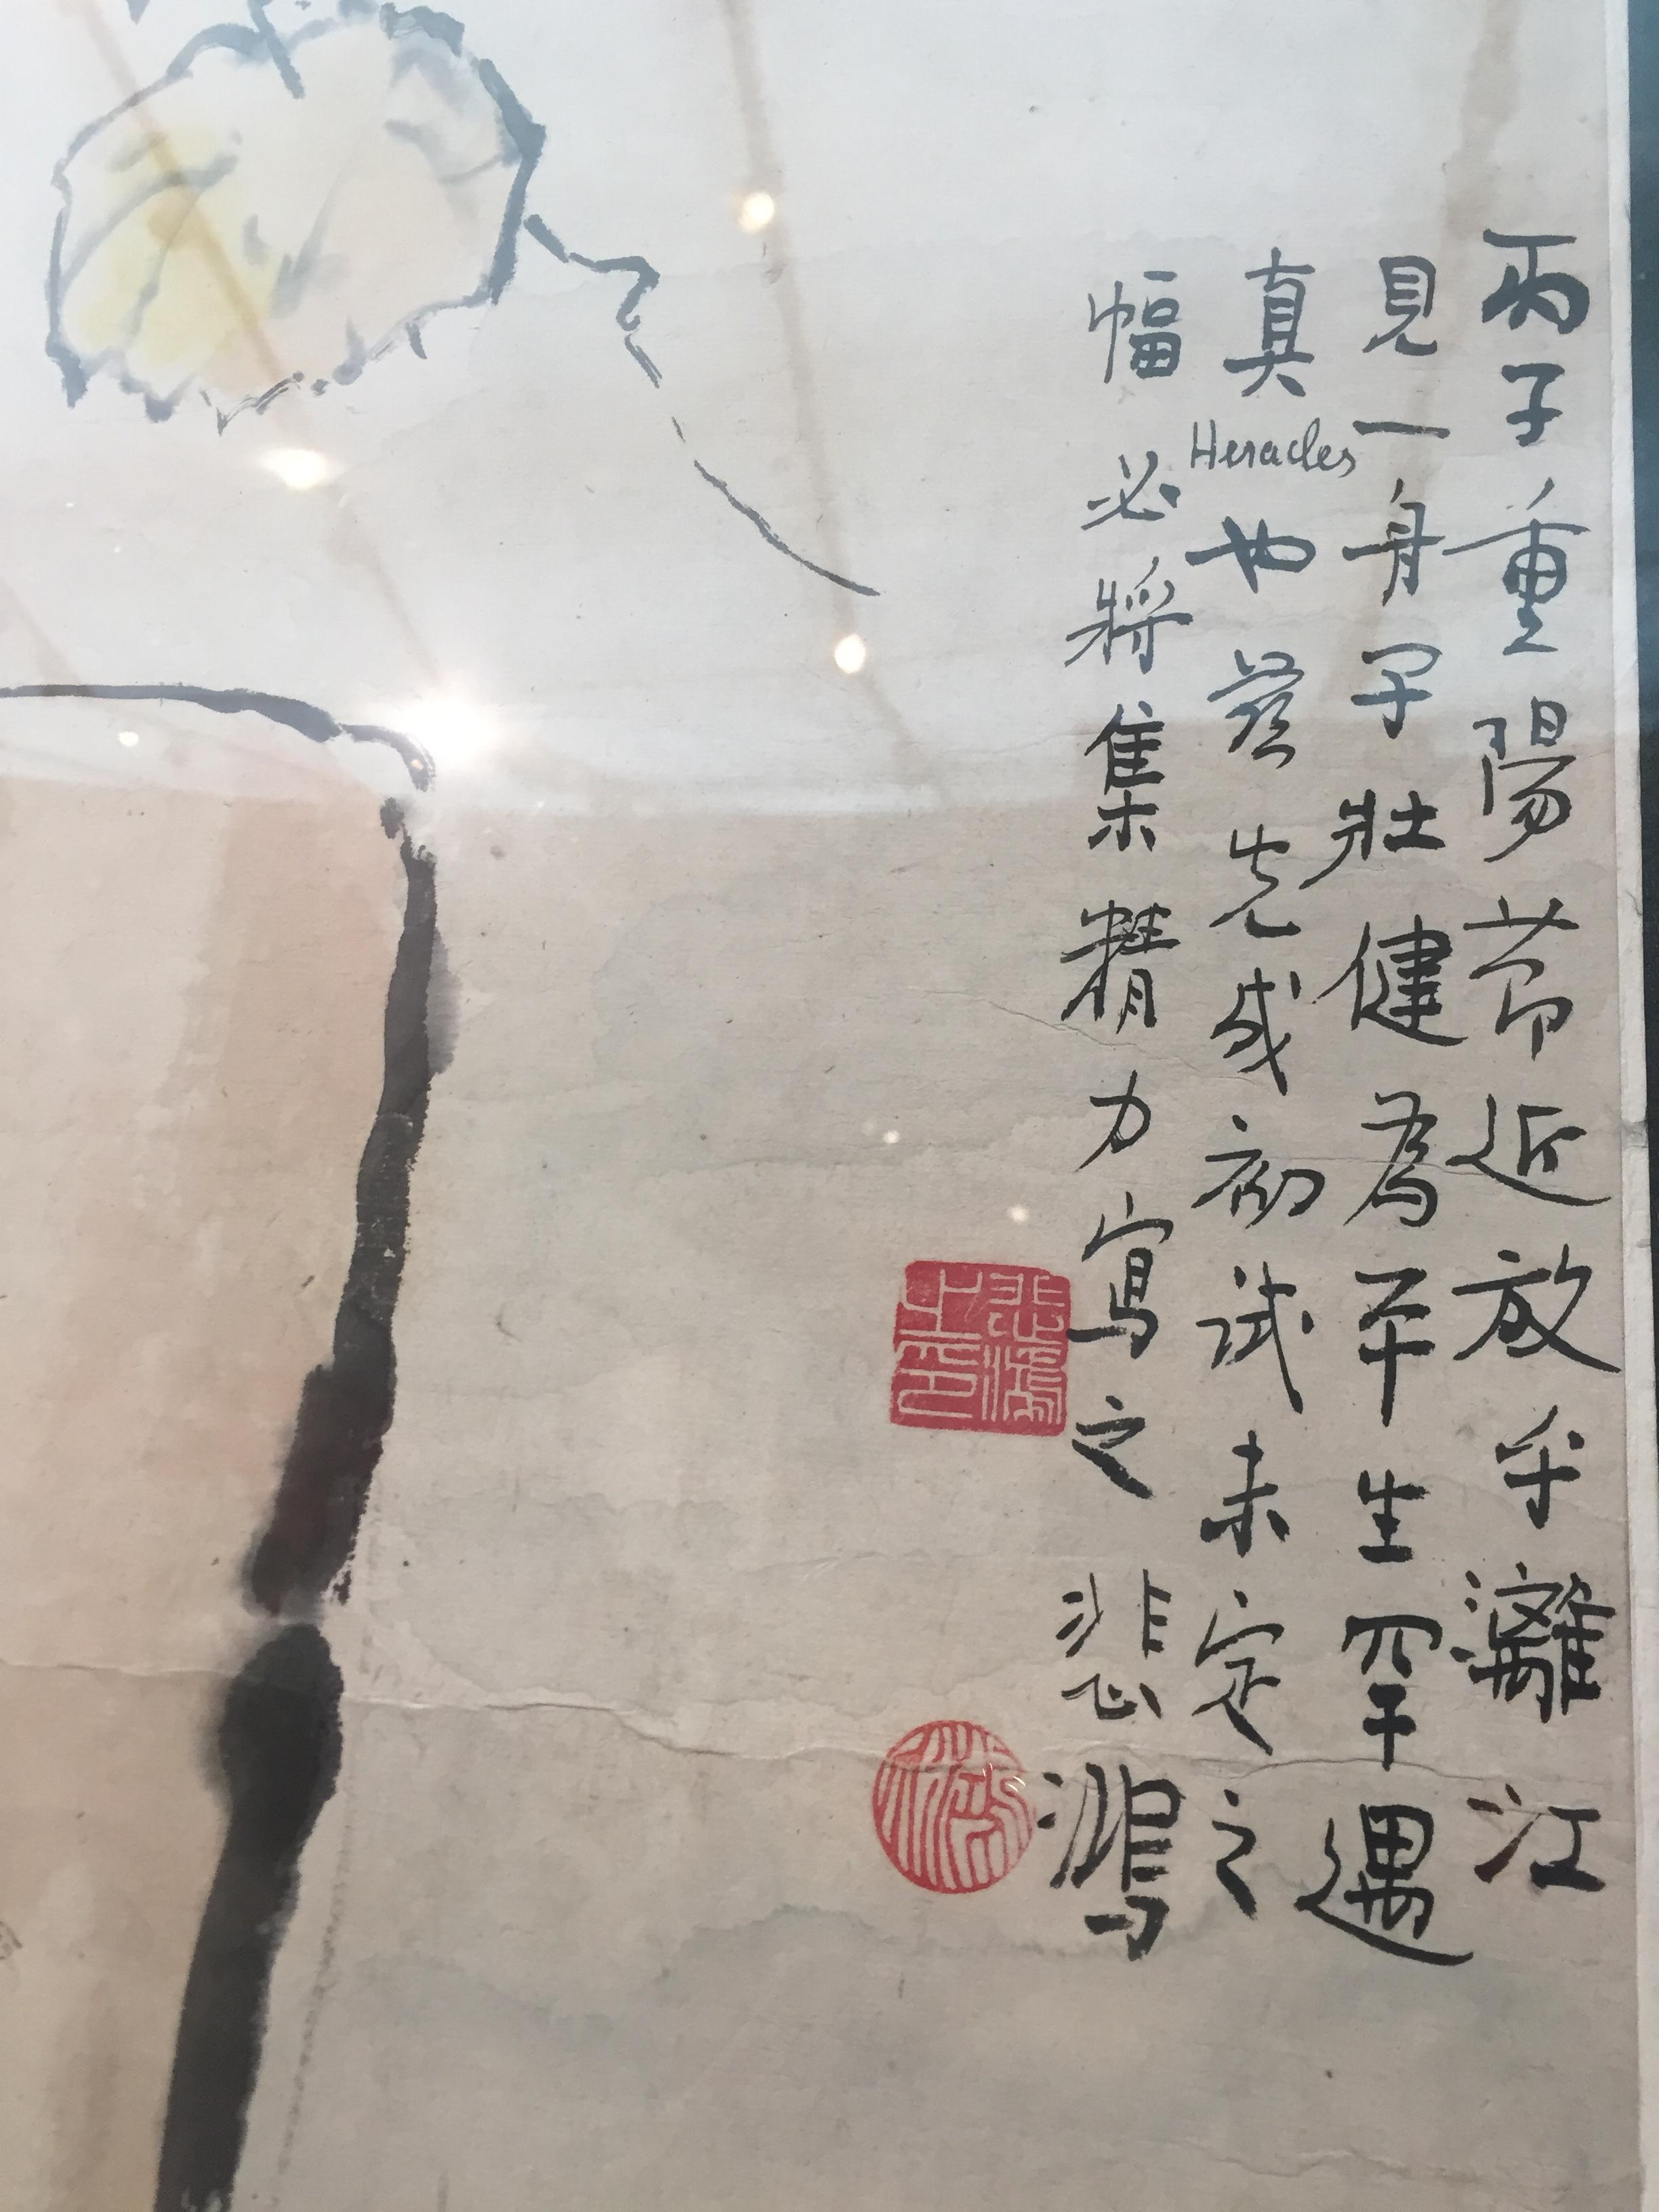 丙子重陽节近放乎灕江
見一舟子壯健為平生罕遇
真Heracles也茲先成初試未定之
幅必將集精力寫之悲鴻
悲鴻之印